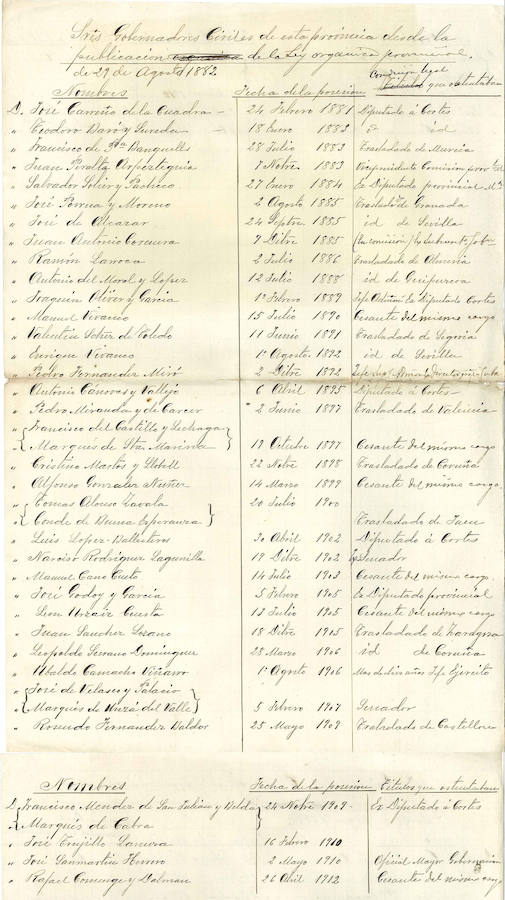 Sres Gobernadores Civiles de esta provincia desde la
publicacion de la Ley organica provincial
de 29 de Agosto 1882.
Nombres Fecha de la posesion Condicion legal que ostentaban
D. José Carreño de la Cuadra 24 Febrero 1881 Diputado á Cortes
" Teodoro Baró y Sureda 18 Enero 1883 id
" Francisco de Pla Banquells 28 Julio 1883 Trasladado de Murcia
" Juan Peralta 7 Novre 1883 Vicepresidente Comision
" Salvador Soliér y Pacheco 27 Enero 1884 Ex Diputado provincial
" José Porrua y Moreno 2 Agosto 1885 Traslado de Granada
" José de Alcazar 24 Septre 1885 id de Sevilla
" Juan Antonio Corcuera 9 Dibre 1885
" Ramón Larroca 2 Julio 1886 Trasladado de Almeria
" Antonio del Moral y Lopez 12 Julio 1888 id de Guipuzcoa
" Joaquin Oliver y Garcia 1º Febrero 1889 Ex Diputado Cortes
" Manuel Vivanco 15 Julio 1890 Cesante del mismo cargo
" Valentin de Toledo 11 Junio 1891 Trasladado de Segovia
" Enrique Vivanco 1º Agosto 1892 id de Sevilla
" Pedro Fernandez Miró 2 Dibre 1892
" Antonio Cánovas y Vallejo 6 Abril 1895 Diputado á Cortes
" Pedro Miranda y de Carcer 2 Junio 1897 Trasladado de Valencia
" Francisco del Castillo y Lechaga
" Marqués de Sta. Marina 19 Octubre 1897 Cesante del mismo cargo
" Cristino Martos y Llobell 22 Nobre 1898 Trasladado de Coruña
" Alfonso Gonzalez Nuñez 14 Marzo 1899 Cesante del mismo cargo
" Tomas Alonso Zavala 20 Julio 1900
" Conde de Buena Esperanza Trasladado de Jaen
" Luis Lopez-Ballesteros 30 Abril 1902 Diputado á Cortes
" Narciso Rodriguez Lagunilla 19 Dibre 1902 Ex Senador
" Manuel Cano Cueto 14 Julio 1903 Cesante del mismo cargo
" José Godoy y Garcia 5 Febrero 1905 Ex Diputado provincial
" Leon Urzaiz Cuesta 13 Julio 1905 Cesante del mismo cargo
" Juan Sanchez Lozano 18 Dibre 1905 Trasladado de Zaragoza
" Leopoldo Serrano Dominguez 28 Marzo 1906 id de Coruña
" Ubaldo Camacho Viñarro 1º Agosto 1906 Mas de dos años Jefe Ejército
" José de Velasco y Palacio
" Marqués de Unzá del Valle 5 Febrero 1907 Senador
" Rosendo Fernandez Baldor 25 Mayo 1909 Trasladado de Castellon
Nombres Fecha de la posesion Titulos que ostentaban
D. Francisco Mendez de San Julián y Belda 24 Nobre 1909. Ex Diputado á Cortes
" Marqués de Cabra
" José Trujillo 16 Febrero 1910
" José Sanmartin Herrero 2 Mayo 1910 Oficial Mayor Gobernacion
" Rafael Comenge y Dalmau 26 Abril 1912 Cesante del mismo cargo